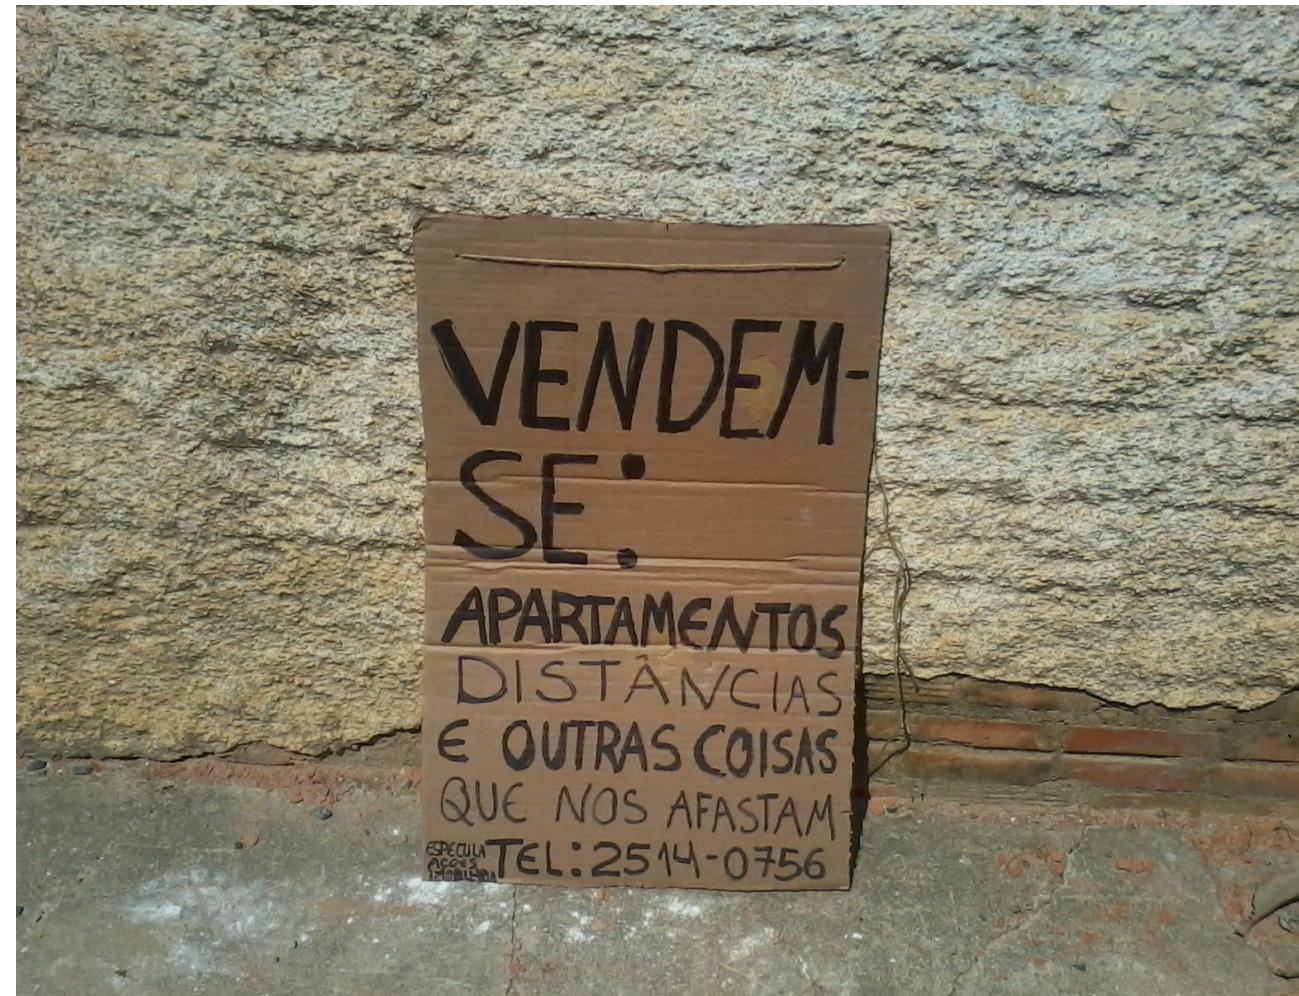 VENDEM-
SE:
APARTAMENTOS
DISTÂNCIAS
E OUTRAS COISAS
QUE NOS AFASTAM-
ESPECULA
AÇOES
IMOBILIARIA
TEL: 2514-0756